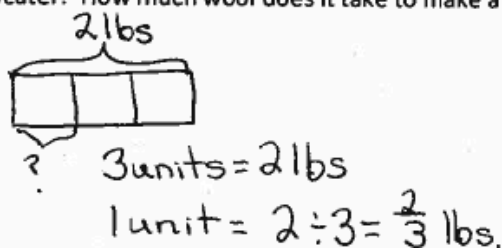 How much wool does it take to make a
2 lbs
?
3 units = 2 lbs
1 unit = 2 ÷ 3 = 2/3 lbs.